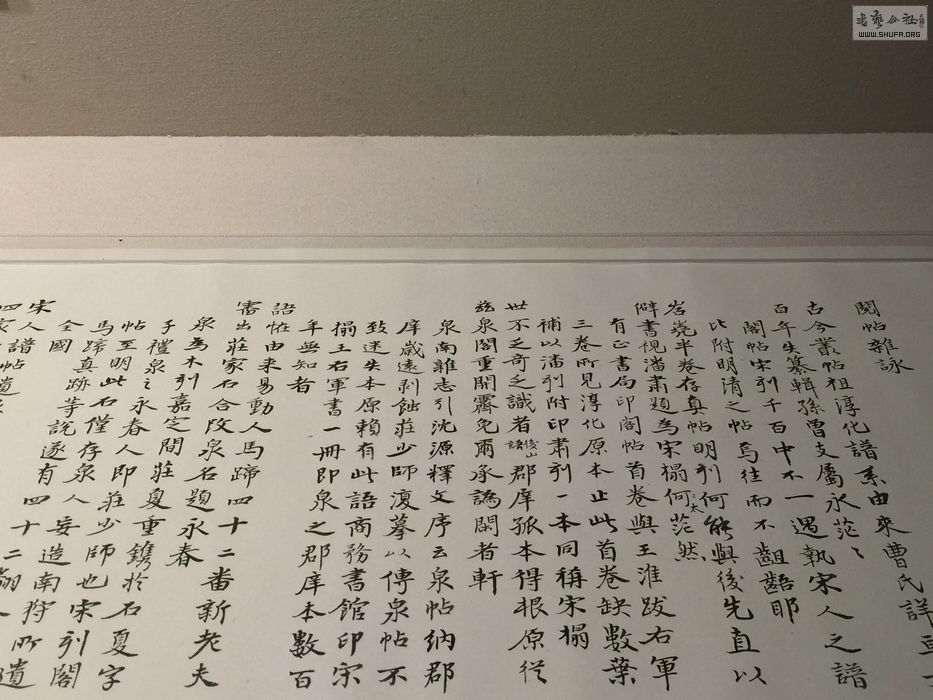 閱帖雜詠
古今叢帖祖淳化譜系由來曹氏詳
百年朱纂輯孫曹支屬永茫茫
閣帖宋刊千百中不一遇執宋人之譜
比附明清之帖焉往而不齟齬耶
岩嶤半卷存真帖明刊何能與後先直以
僻書俔潘肅題為宋搨何太茫然
有正書局印閣帖首卷與王淮跋右軍
三卷所見淳化原本止此首卷缺數葉
補以潘刊附印肅刊一本同稱宋搨
世不乏奇乏識者郡庠孤本得根原從
茲泉閣重開霽免爾承譌閱者軒
泉南雜志引沈源釋文序云泉帖納郡
庠歲遠剥蝕莊少師復摹以傳泉帖不
致迷失本原賴有此語商務書館印宋
搨王右軍書一冊即泉之郡庠本數百
年無知者
語恠由來易動人馬蹄四十二番新老夫
審出莊家石合改泉名題永春
泉為木刊嘉定間莊夏重鐫於石夏字
子禮泉之永春人即莊少師也宋刊閣
帖至明此石僅存泉人妄造南狩所遺
馬蹄真跡等說遂有四十二
全國
宋人譜帖
四家